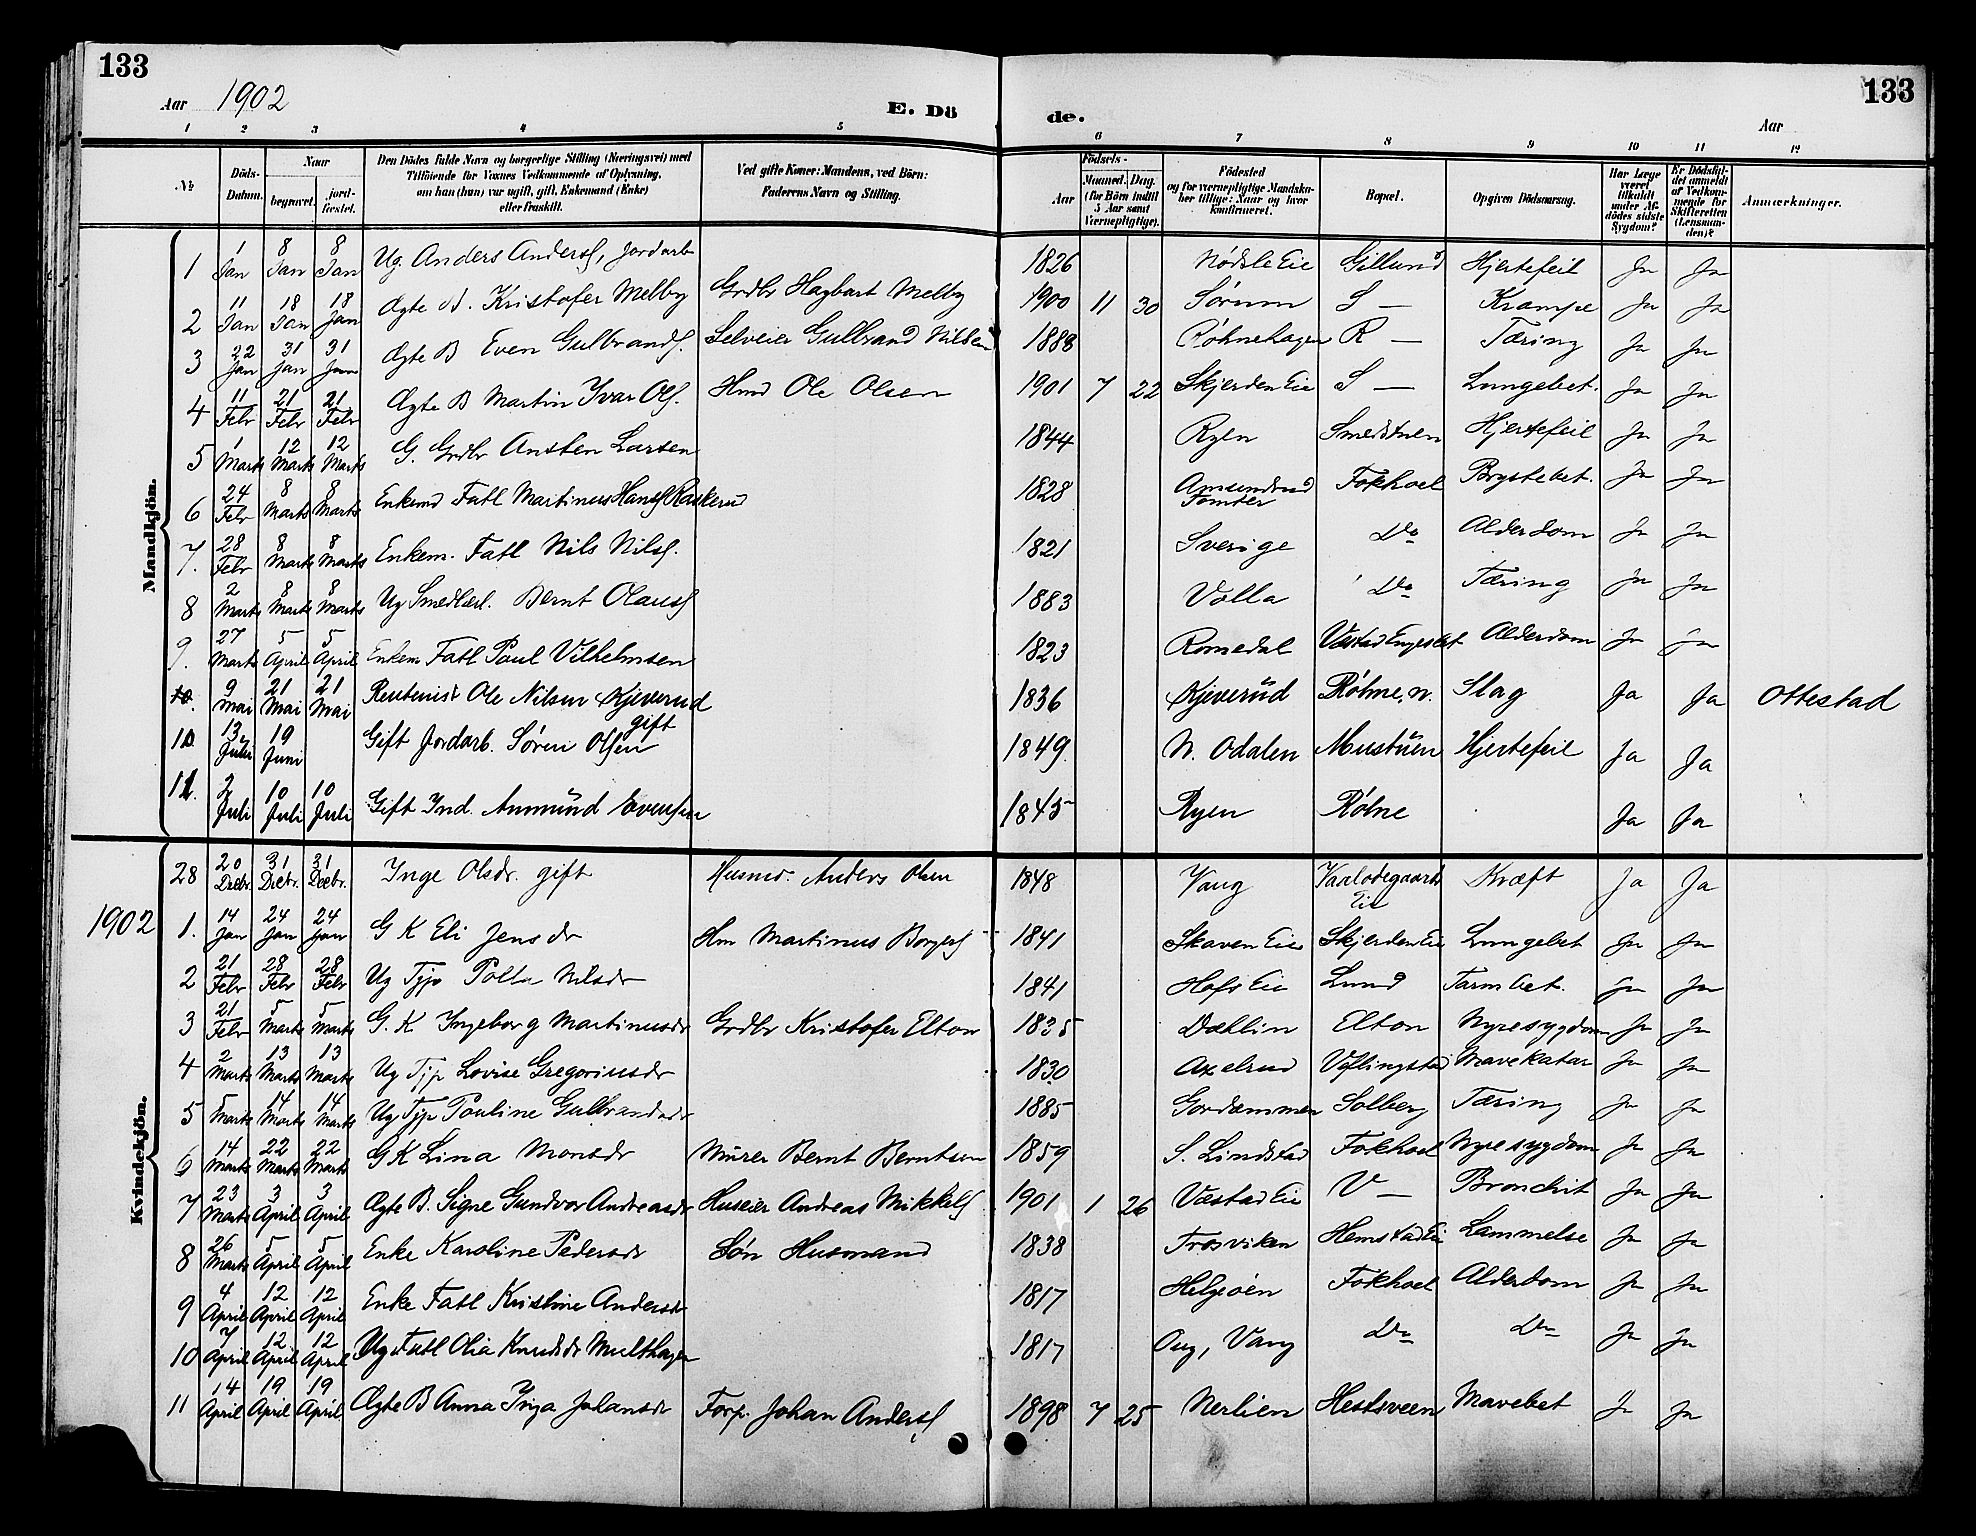 133
Aar 1902
E. Dö
de.
Aar
133
1 2 3 4 5 6 7 8 9 10 11 12
№
Döds-Datum.
Naar
begravet.
jord-fæstet.
Den Dödes fulde Navn og borgerlige Stilling (Næringsvei) med
Tilföiende for Voxnes Vedkommende af Oplysning,
om han (hun) var ugift, gift, Enkemand (Enke)
eller fraskilt.
Ved gifte Koner: Mandens, ved Börn:
Faderens Navn og Stilling.
Födsels-
Aar
Maaned. Dag.
(for Börn indtil
5 Aar samt
Værnepligtige).
Födested
og for værnepligtige Mandska-
ber tillige: Naar og hvor
konfirmeret.
Bopæl.
Opgiven Dödsaarsag.
Har Læge
været
tilkaldt
under Af-
dödes sidste
Sygdom?
Er Dödsfal-
det anmeldt
af Vedkom-
mende for
Skifteretten
(Lensman-
den)?
Anmærkninger.
Mandkjön.
1 1 Jan 8 Jan 8 Jan Ug. Anders Anders., Jordarb 1826 Nødsle Eie Gillund Hjertefeil Ja Ja
2 11 Jan 18 Jan 18 Jan Ægte B. Kristofer Melby Grdbr Hagbart Melby 1900 11 30 Sørum S — Krampe Ja Ja
3 22 Jan 31 Jan 31 Jan Ægte B Even Gulbrands. Selveier Gulbrand Nilsen 1888 Røhnehagen R — Tæring Ja Ja
4 11 Febr 21 Febr 21 Febr Ægte B Martin Ivar Ols. Hmd Ole Olsen 1901 7 22 Skjerden Eie S — Lungebet. Ja Ja
5 1 Marts 12 Marts 12 Marts G. Grdbr Ansten Larsen 1844 Ryen Smedstuen Hjertefeil Ja Ja
6 24 Febr 8 Marts 8 Marts Enkemd Fatl Martinus Hans. Raskerud 1828 Amundrud Tomter Fokhoel Brystebet. Ja Ja
7. 28 Febr 8 Marts 8 Marts Enkem. Fatl Nils Nils. 1821 Sverige Do Alderdom Ja Ja
8 2 Marts 8 Marts 8 Marts Ug Smedlærl. Bernt Olaus. 1883 Volla Do Tæring Ja Ja
9. 27 Marts 5 April 5 April Enkem Fatl Paul Vilhelmsen 1823 Romedal Væstad Engeslet Alderdom Ja Ja
10. 9 Mai 21 Mai 21 Mai Rentenist Ole Nilsen Kjeverud 1836 Kjeverud Røhne, n. Slag Ja Ja Ottestad
10. 13 Juni 19 Juni Gift Jordarb. Søren Olsen gift 1849. N. Odalen Mustuen Hjertefeil Ja Ja
11. 2 Juli 10 Juli 10 Juli Gift Ind. Ammund Evensen 1845 Ryen Røhne Ja Ja
Kvindekjön.
28 20 Decbr. 31 Decbr. 31 Decbr. Inge Olsdr. gift Husmd. Anders Olsen 1848 Vang Eie Kræft Ja Ja
1902 1. 14 Jan 24 Jan 24 Jan G K Eli Jensdr Hm Martinus Borgers 1841 Skaven Eie Skjerden Eie Lungebet Ja Ja
2 21 Febr 28 Febr 28 Febr Ug Tjp Nilsdr 1841 Hofs Eie Lund Tarmbet. Ja Ja
3 21 Febr 5 Marts 5 Marts G. K Ingeborg Martinusdr Grdbr Kristofer Elton 1835 Dæhlin Elton Nyresygdom Ja Ja
4 2 Marts 13 Marts 13 Marts Ug Tjp Lovise Gregoriusdr 1830 Axelrud Viflingstad Mavekatar Ja Ja
5 5 Marts 14 Marts 14 Marts Ug Tjp Pauline Gulbrandsdr 1885 Gordammen Solberg Tæring Ja Ja
6 14 Marts 22 Marts 22 Marts G K Lina Monsdr Murer Bernt Berntsen 1859 S. Lindstad Fokhoel Nyresygdom Ja Ja
7 23 Marts 3 April 3 April Ægte B. Signe Gundvor Andreasdr Huseier Andreas Mikkels. 1901 1 26 Væstad Eie V — Bronchit Ja Ja
8 26 Marts 5 April 5 April Enke Karoline Pedersdr Søn Husmand 1838 Trosviken Hemstad Ei Lammelse Ja Ja
9 4 April 12 April 12 April Enke Fatl Kristine Andersdr 1817 Helgøen Fokhoel Alderdom Ja Ja
10 7 April 12 April 12 April Ug Fatl Olia Knudsdr Multhagen 1817 Oug, Vang Do Do Ja Ja
11 14 April 19 April 19 April Ægte B Anna Inga Johansdr Forp. Johan Anders. 1898 7 25 Nerlien Hestsveen Mavebet Ja Ja